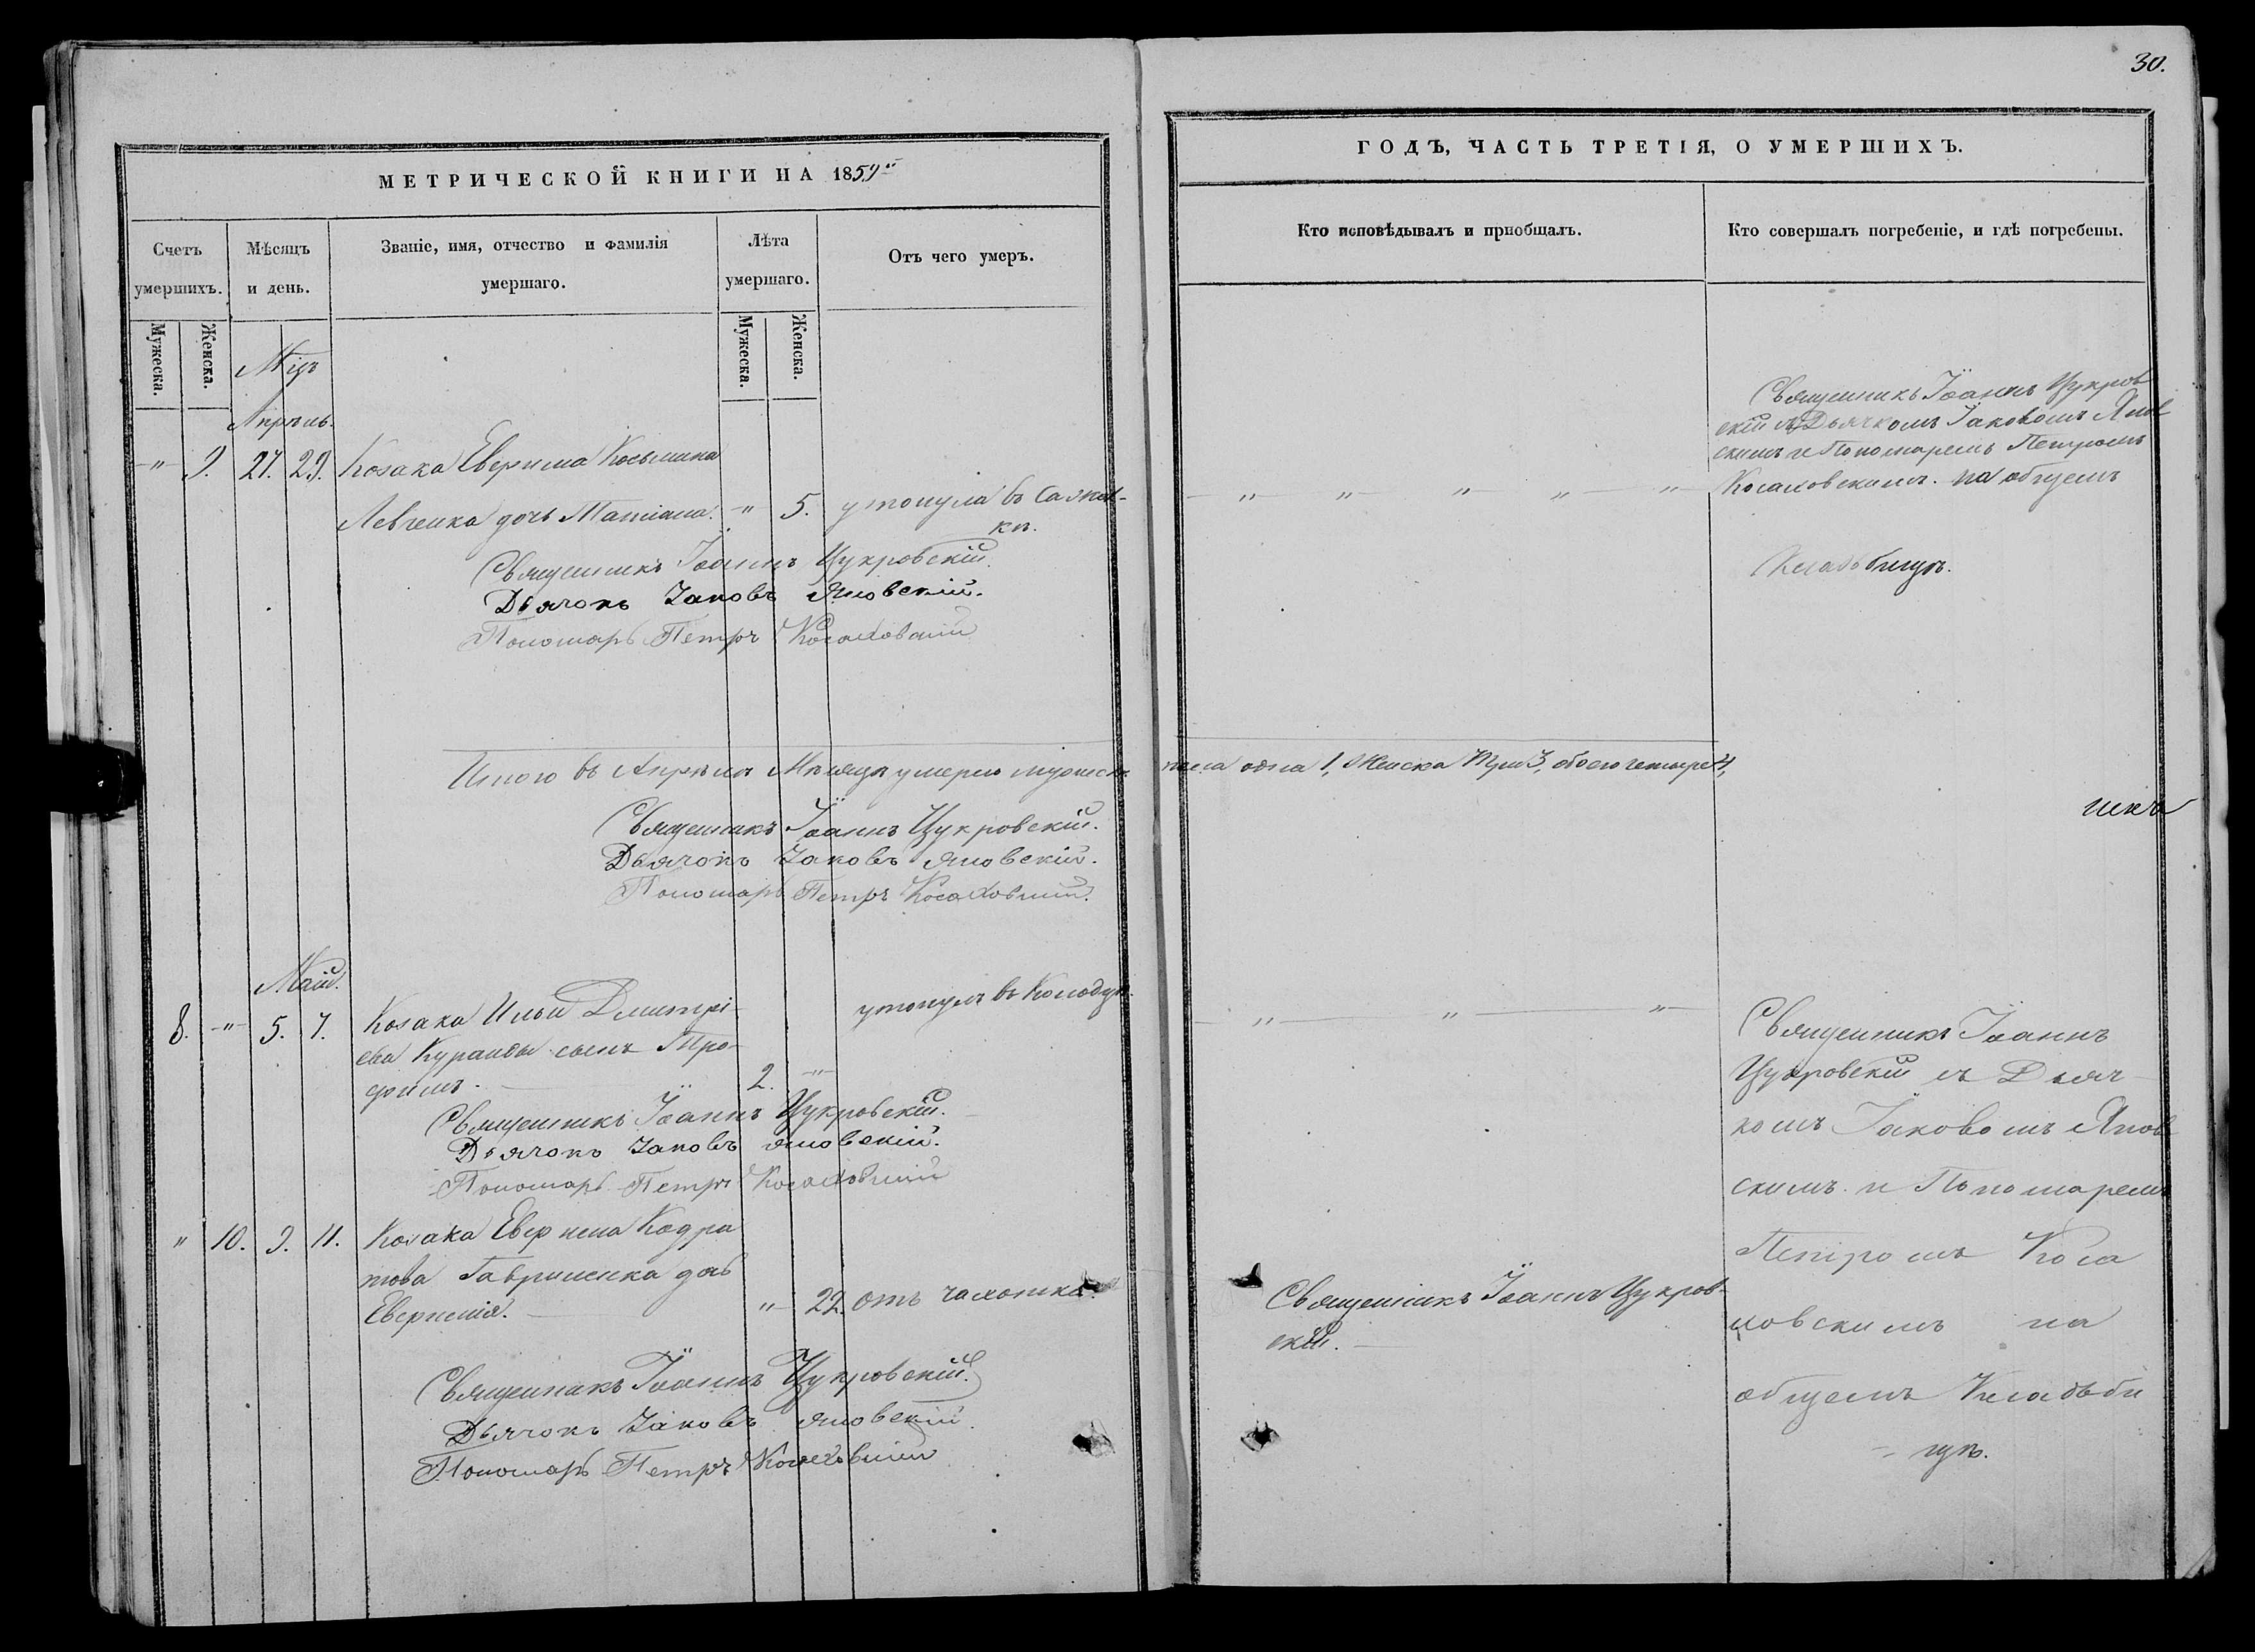 30.
МЕТРИЧЕСКОЙ КНИГИ НА 1859й
Счетъ умершихъ.
Мужеска.
Женска.
Мѣсяцъ и день.
Званіе, имя, отчество и фамилія умершаго.
Лѣта умершаго.
Мужеска.
Женска.
Отъ чего умеръ.
Мцъ
Апрѣль.
-"- 9. 27. 29. Козака Евфима Косьмина
Левченка дочь Татіана. -"- 5. утонула въ
Священникъ Іоаннъ Цукровскій.
Дьячокъ Іаковъ Яновскій.
Пономарь Петръ Косаковскій
Итого въ Апрѣлѣ Мѣсяцѣ умерло мужеска
Священникъ Іоаннъ Цукровскій.
Дьячокъ Іаковъ Яновскій.
Пономарь Петръ Косаковскій.
Май.
8. -"- 5. 7. Козака Ильи Дмитрі- утонулъ въ Колодцѣ.
ева Куранды сынъ Тро-
фимъ. 2. -"-
Священникъ Іоаннъ Цукровскій.
Дьячокъ Іаковъ Яновскій.
Пономарь Петръ Косаковскій
" 10. 9. 11. Козака Кодра
това Гавриленка дочь
"- 22. отъ чахотки.
Священникъ Іоаннъ Цукровскій.
Дьячокъ Іаковъ Яновскій.
Пономарь Петръ Косаковскій
ГОДЪ, ЧАСТЬ ТРЕТІЯ, О УМЕРШИХЪ.
Кто исповѣдывалъ и пріобщалъ.
Кто совершалъ погребеніе, и гдѣ погребены.
Священникъ Іоаннъ Цукров
скій съ Дьячкомъ Іаковомъ Янов
скимъ и Пономаремъ Петромъ
- " - " - " - " - " - Косаковскимъ. на общемъ
Кладбищѣ.
пола одна 1, Женска Три 3, обоего четыре 4,
- " - " - " -
Священникъ Іоаннъ
Цукровскій съ Дьяч
комъ Іаковомъ Янов
скимъ и Пономаремъ
Петромъ Коса
ковскимъ на
общемъ Кладьби
- щѣ.
Священникъ Іоаннъ Цукров-
скій.